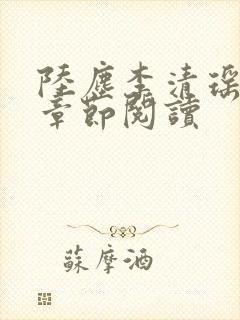 陸塵李清瑤
章節閱讀
蘇摩酒